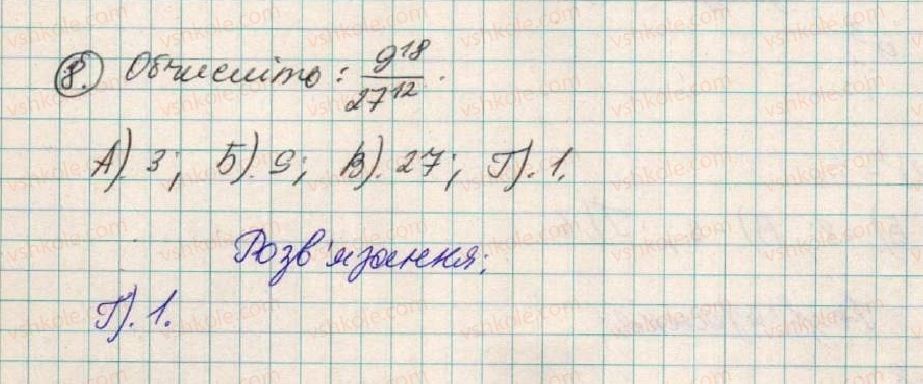 8. Обчисліть: 9^18 / 27^12.
А). 3; Б). 9; В). 27; Г). 1.
Розв'язання:
Г). 1.